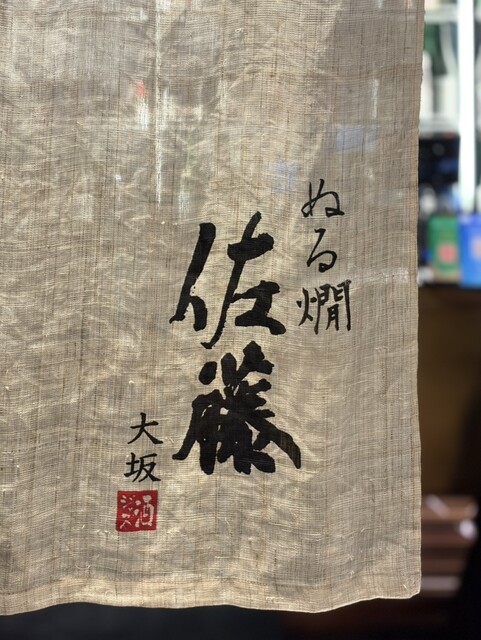 ぬる燗
佐藤
大坂